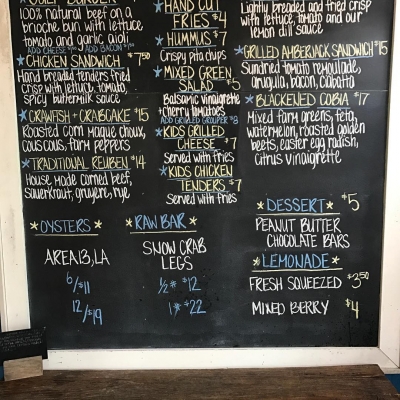 100% natural beef on a
brioche bun with lettuce,
tomato and garlic aioli
ADD CHEESE ADD BACON
* CHICKEN SANDWICH * $7.50
Hand breaded tenders fried
crisp with lettuce, tomato,
spicy buttermilk sauce
* CRAWFISH + CRABCAKE * $15
Roasted corn maque choux,
couscous, farm peppers
* TRADITIONAL REUBEN * $14
House made corned beef,
sauerkraut, gruyere, rye
* HAND CUT
FRIES * $4
* HUMMUS * $7
Crispy pita chips
* MIXED GREEN
SALAD * $5
Balsamic vinaigrette
Cherry tomatoes
ADD GRILLED GROUPER $8
* KIDS GRILLED
CHEESE * $7
Served with fries
* KIDS CHICKEN
TENDERS * $7
Served with fries
Lightly breaded and fried crisp
with lettuce, tomato and our
lemon dill sauce
* GRILLED AMBERJACK SANDWICH * $15
Sundried tomato remoulade,
arugula, bacon, ciabatta
* BLACKENED COBIA * $17
Mixed farm greens, feta,
watermelon, roasted golden
beets, easter egg radish,
citrus vinaigrette
* OYSTERS *
AREA 13, LA
6/$11
12/$19
* RAW BAR *
SNOW CRAB
LEGS
1/2# $12
1# $22
* DESSERT * $5
PEANUT BUTTER
CHOCOLATE BARS
* LEMONADE *
FRESH SQUEEZED $3.50
MIXED BERRY $4